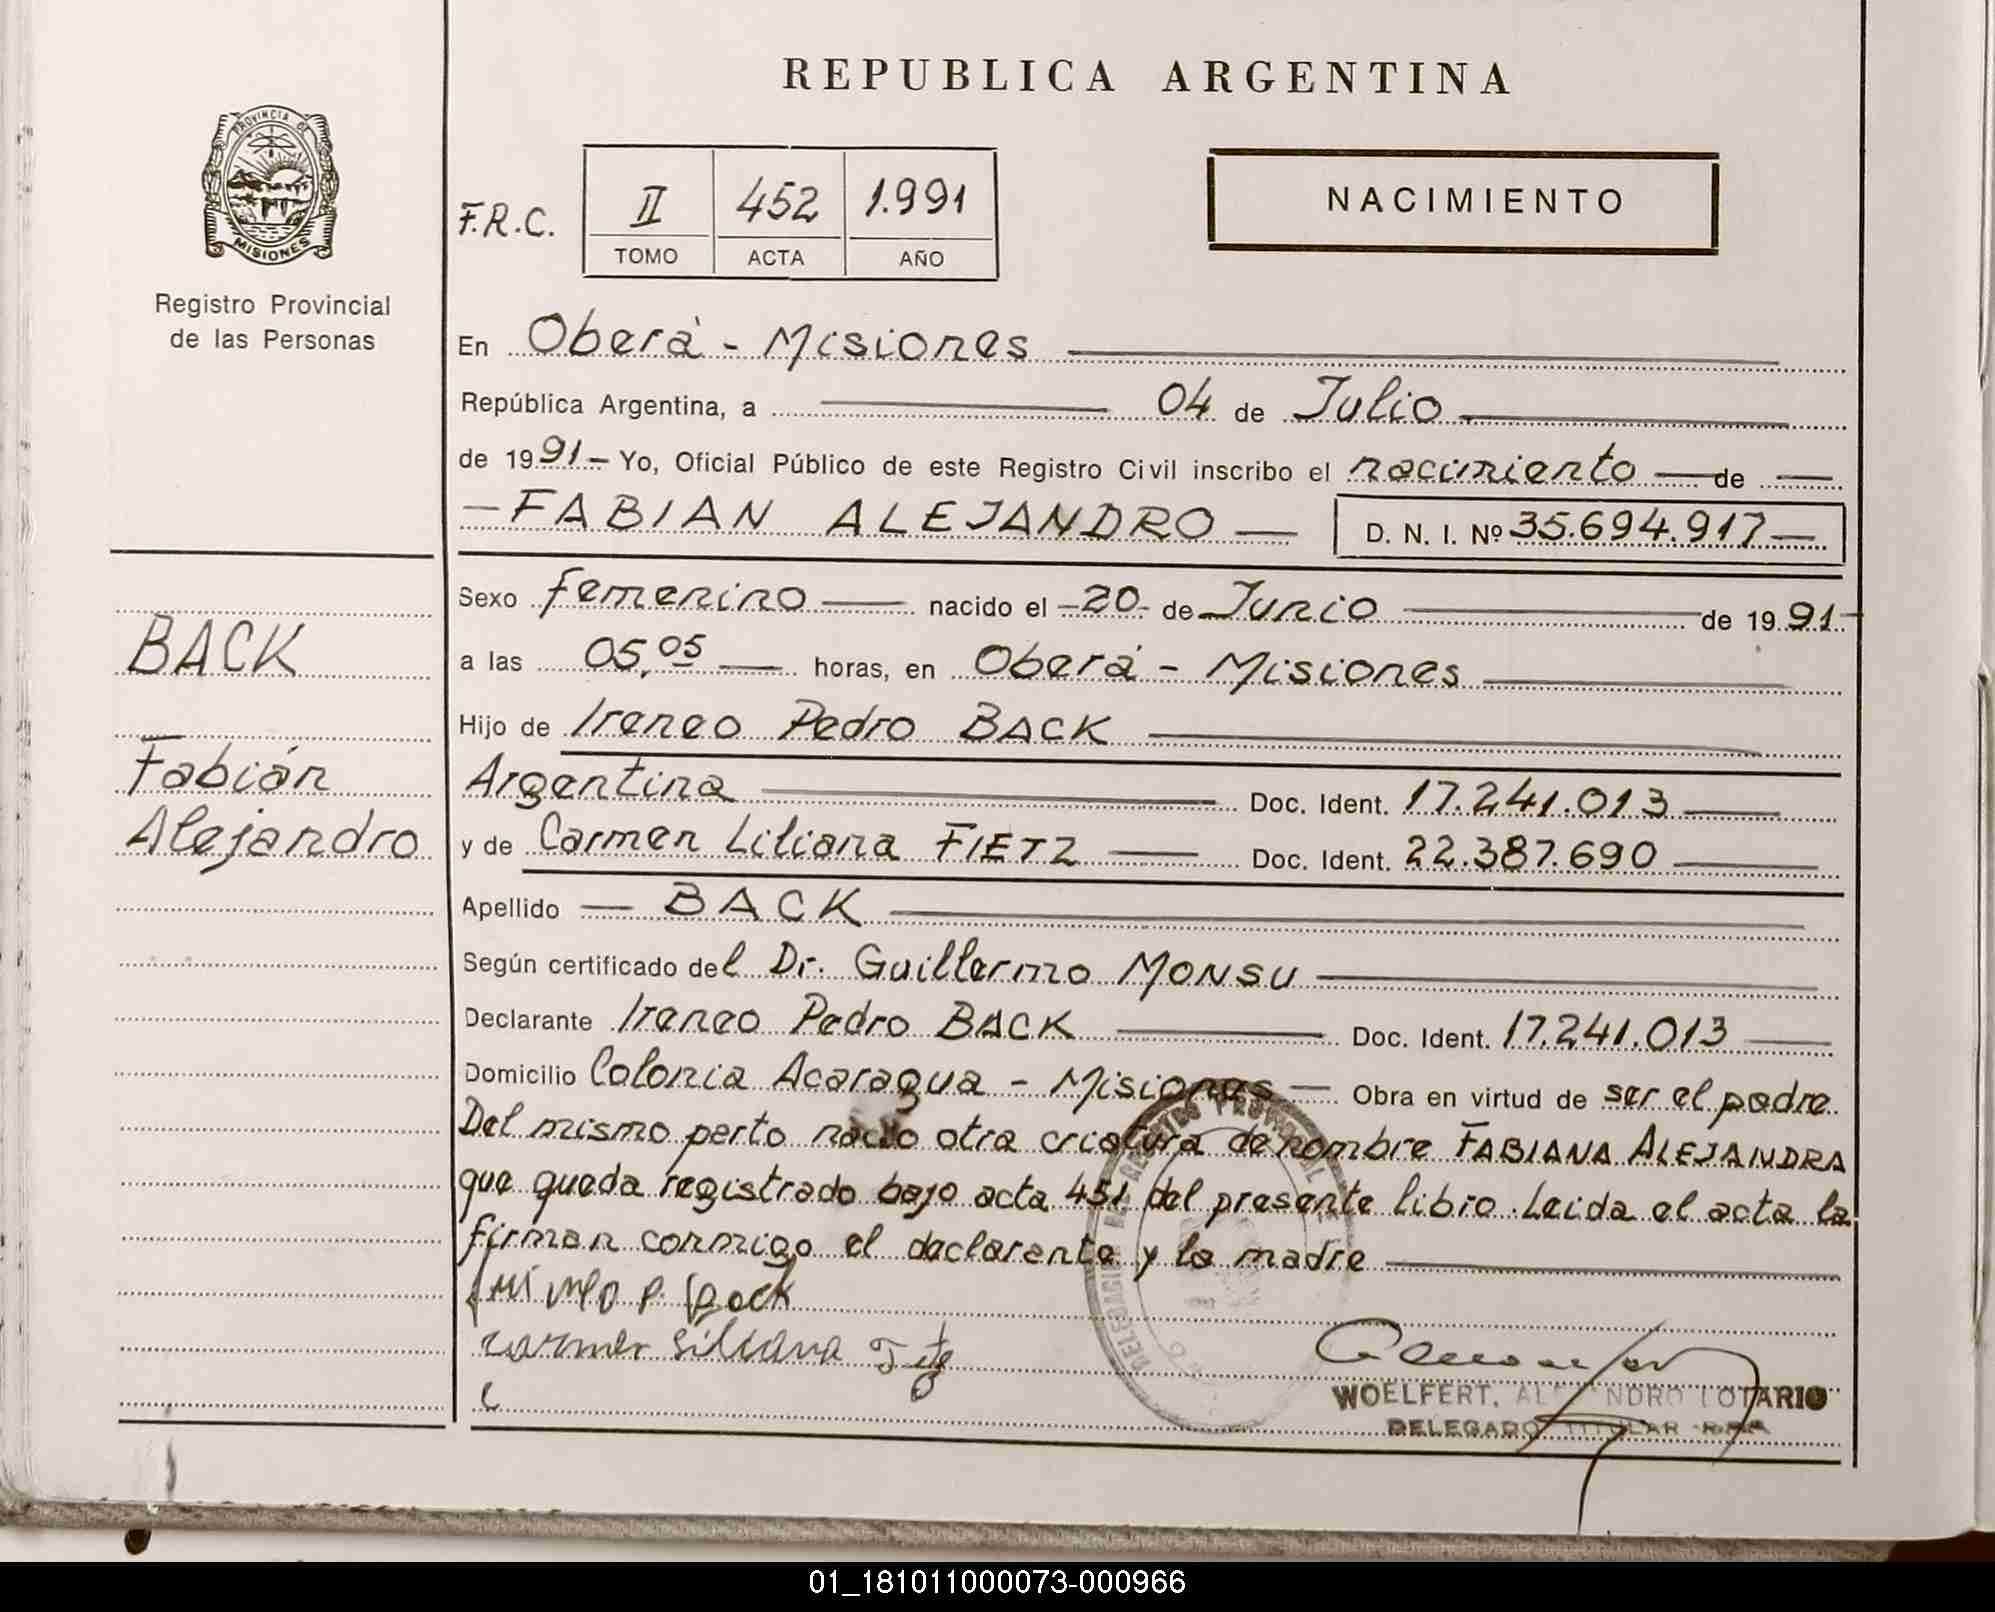 REPUBLICA ARGENTINA
PROVINCIA DE
MISIONES
Registro Provincial
de las Personas
F.R.C.
II 452 1.991
TOMO ACTA AÑO
NACIMIENTO
En Oberá - Misiones
República Argentina, a 04 de Julio
de 1991 - Yo, Oficial Público de este Registro Civil inscribo el nacimiento — de —
— FABIAN ALEJANDRO — D. N. I. Nº 35.694.917 —
Sexo femenino — nacido el - 20 - de Junio — de 1991 -
BACK
a las 05,05 — horas, en Oberá - Misiones
Hijo de Ireneo Pedro BACK
Fabián
Argentina — Doc. Ident. 17.241.013 —
Alejandro
y de Carmen Liliana FIETZ — Doc. Ident. 22.387.690 —
Apellido — BACK
Según certificado del Dr. Guillermo MONSU
Declarante Ireneo Pedro BACK — Doc. Ident. 17.241.013 —
Domicilio Colonia Acaragua - Misiones — Obra en virtud de ser el padre
Del mismo perto nacio otra criatura de nombre FABIANA ALEJANDRA
que queda registrado bajo acta 451 del presente libro. Leida el acta la
firman conmigo el declarante y la madre
WOELFERT, ALEJANDRO LOTARIO
DELEGADO TITULAR
01_181011000073-000966